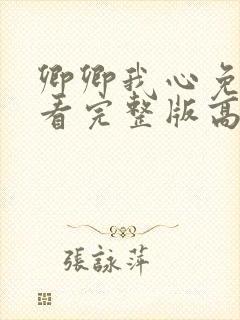 卿卿我心免
看完整版高
張詠萍